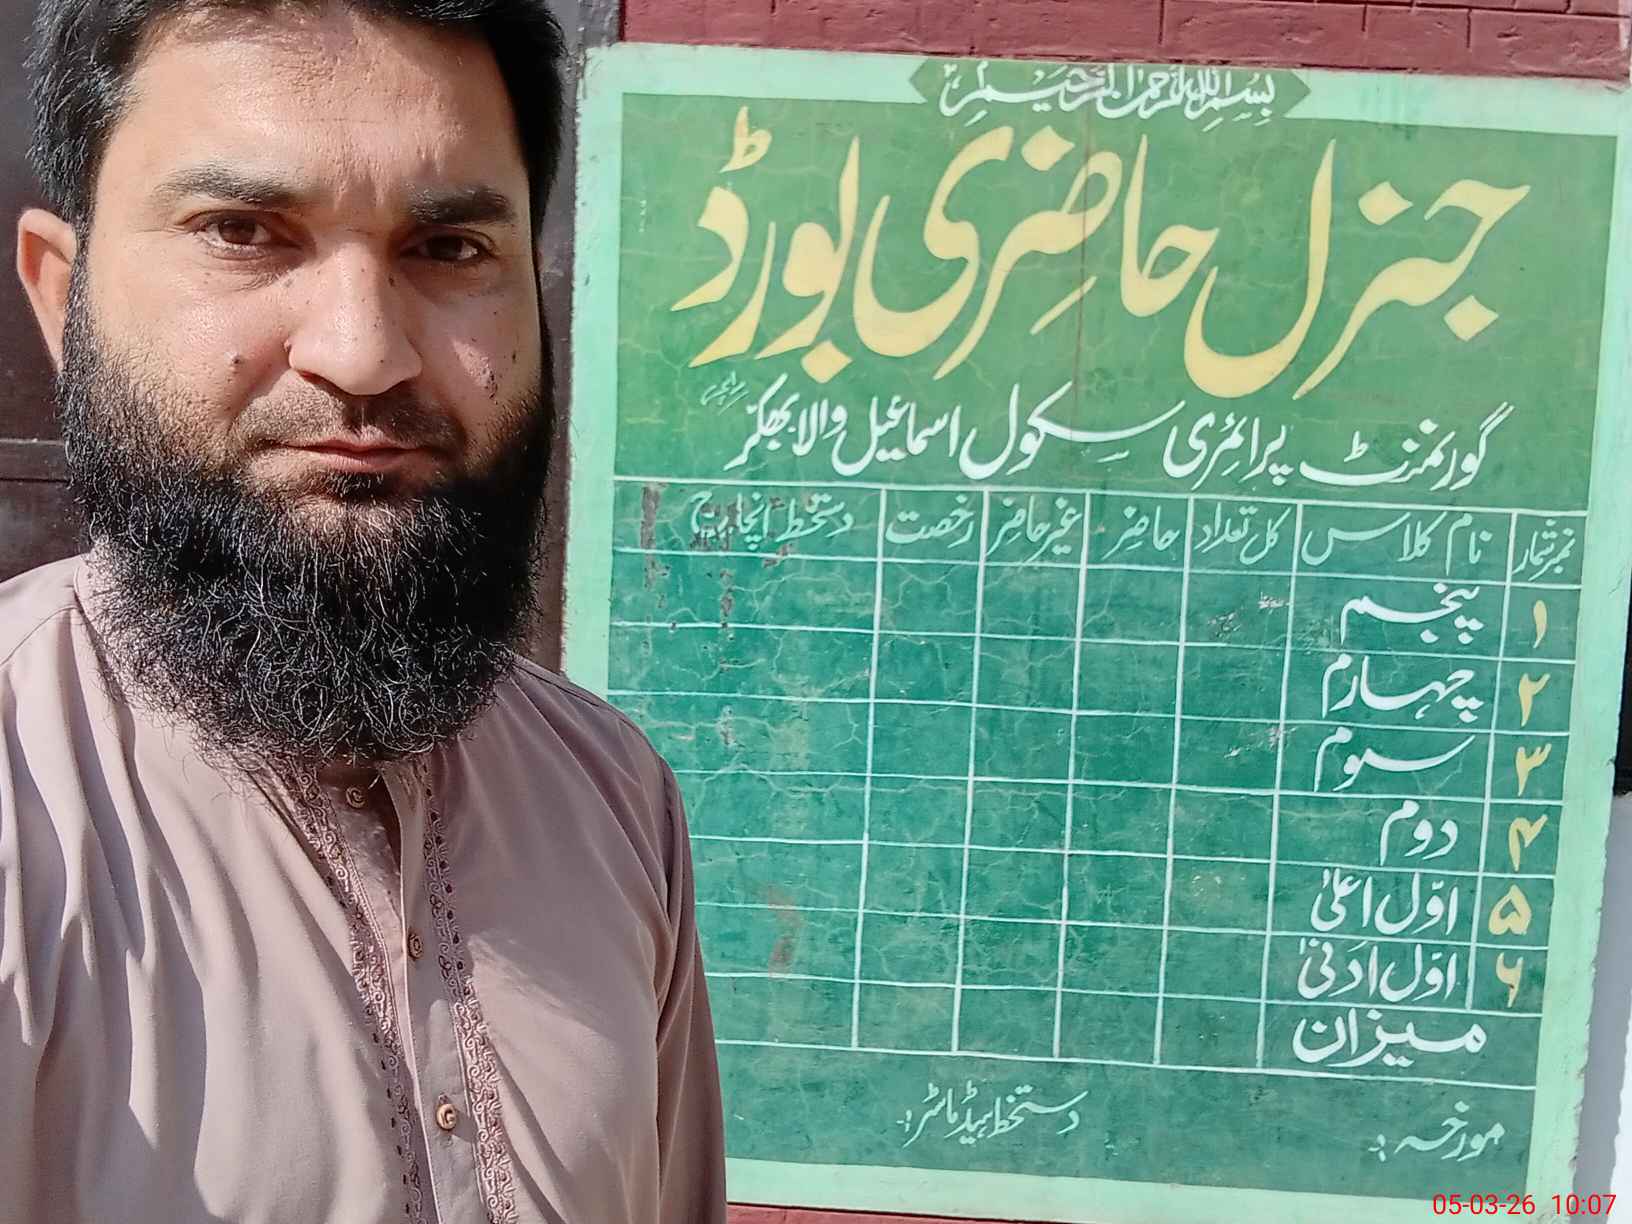 بسم اللہ الرحمن الرحیم
جنرل حاضری بورڈ
گورنمنٹ پرائمری سکول اسماعیل والا بھکر
نمبر شمار نام کلاس کل تعداد حاضر غیر حاضر رخصت دستخط انچارج
۱ پنجم
۲ چہارم
۳ سوم
۴ دوم
۵ اوّل اعلیٰ
۶ اوّل ادنیٰ
میزان
مورخہ :- دستخط ہیڈ ماسٹر :-
05-03-26 10:07